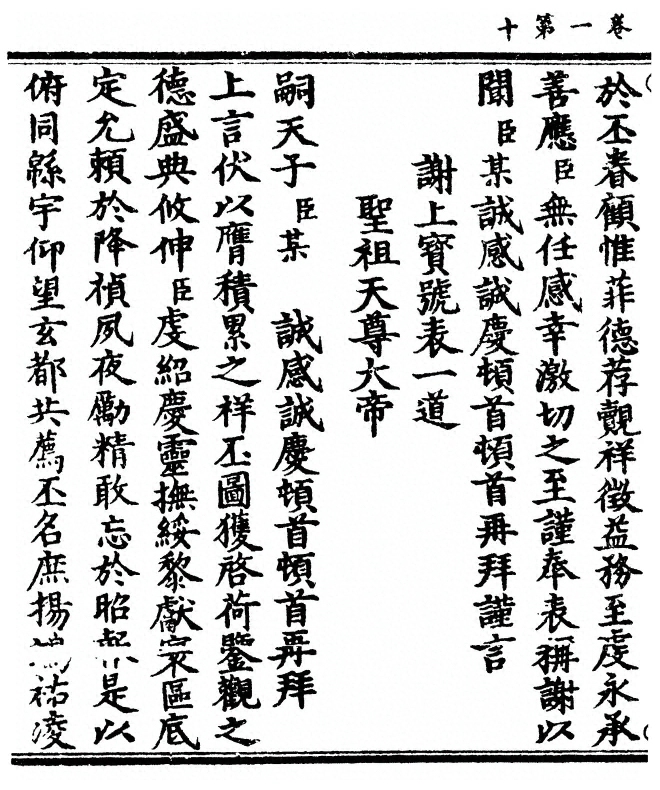 卷一第十
於丕眷顧惟菲德荐覿祥徵益務至虔永承
善應臣無任感幸激切之至謹奉表稱謝以
聞臣某誠感誠慶頓首頓首再拜謹言
謝上寳號表一道
聖祖天尊大帝
嗣天子臣某 誠感誠慶頓首頓首再拜
上言伏以膺積累之祥丕圖獲啓荷鑒觀之
德盛典攸伸臣虔紹慶靈撫綏黎獻寰區底
定允賴於降禎夙夜勵精敢忘於昭是以
俯同緜宇仰望玄都共薦丕名庶揚祐淩